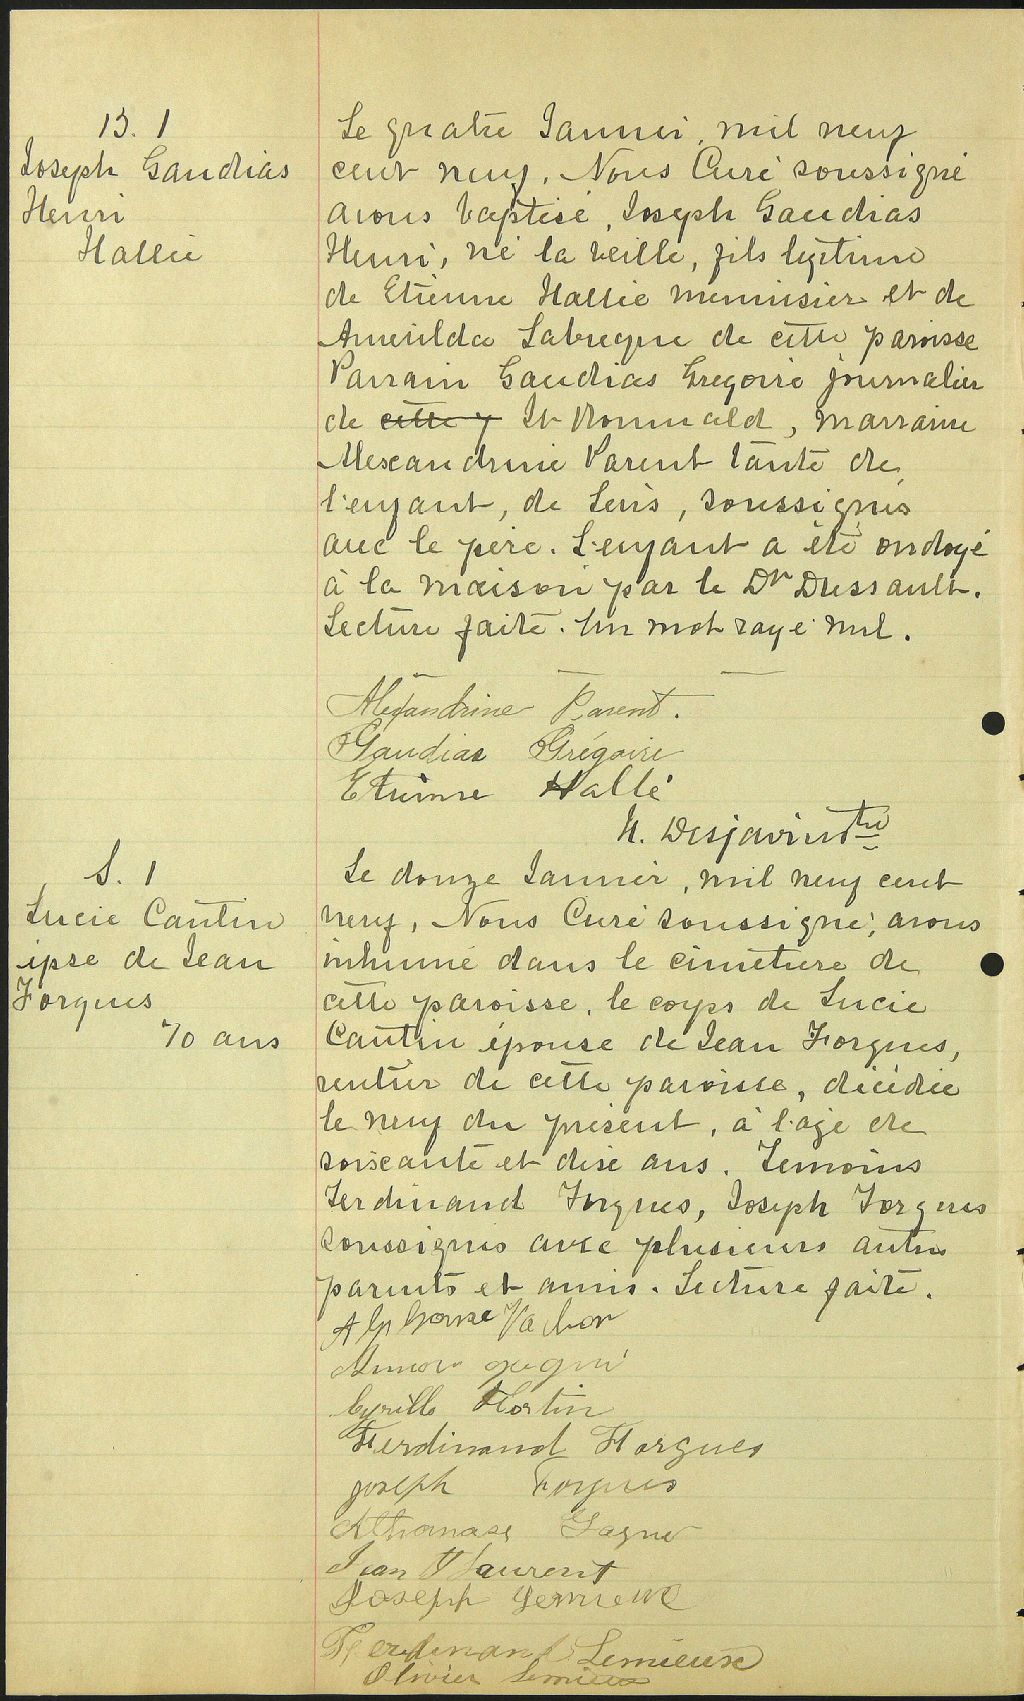 B. 1
Joseph Gaudias
Henri
Hallée
Le quatre Janvier, mil neuf
cent neuf, Nous Curé soussigné
avons baptisé, Joseph Gaudias
Henri, né la veille, fils légitime
de Etienne Hallée menuisier et de
Amerilda Labrecque de cette paroisse
Parrain Gaudias Gregoire journalier
de cette p St Romuald, marraine
Alexandrine Parent tante de
l'enfant, de Levis, soussignés
avec le père. L'enfant a été ondoyé
à la maison par le Dr Dussault.
Lecture faite. Un mot rayé nul.
Alexandrine Parent.
Gaudias Grégoire
Etienne Hallé
N. Desjardins Ptre
S. 1
Lucie Cantin
épse de Jean
Forgues
70 ans
Le douze Janvier, mil neuf cent
neuf, Nous Curé soussigné, avons
inhumé dans le cimetière de
cette paroisse, le corps de Lucie
Cantin épouse de Jean Forgues,
rentier de cette paroisse, décédée
le neuf du présent, à l'age de
soixante et dix ans. Temoins
Ferdinand Forgues, Joseph Forgues
soussignés avec plusieurs autres
parents et amis. Lecture faite.
Alphonse Vachon
Cyrille Fortin
Ferdinand Forgues
joseph Forgues
Athanase Gagne
Jean Laurent
Joseph Lemieux
Ferdinand Lemieux
Olivier Lemieux